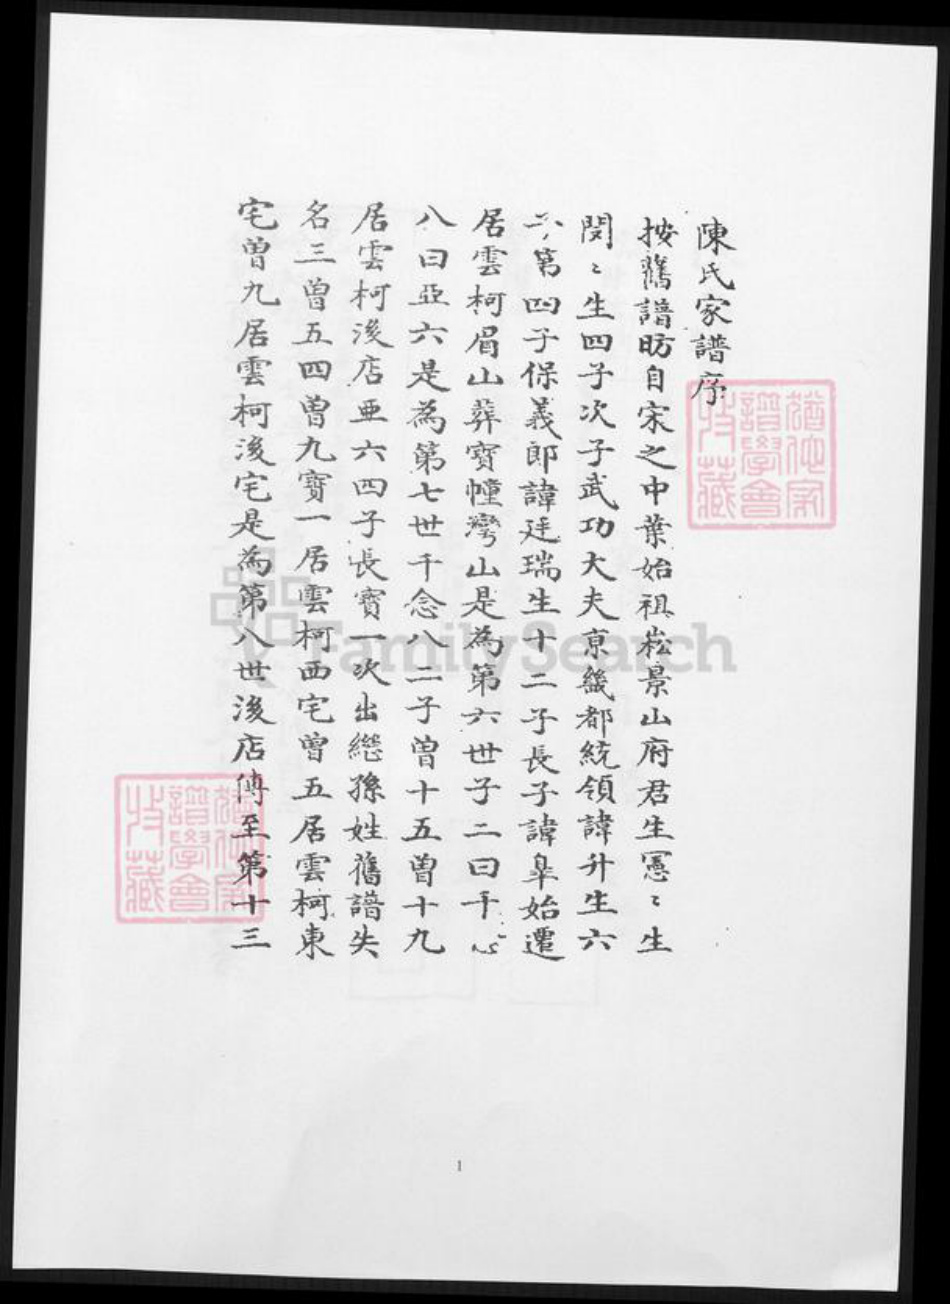 陳氏家譜序
按舊譜昉自宋之中葉始祖崧景山府君生憲〻生
閔〻生四子次子武功大夫京畿都統領諱升生六
子第四子保義郎諱廷瑞生十二子長子諱皐始遷
居雲柯眉山葬寶幢灣山是為第六世子二曰千念
八曰亞六是為第七世千念八二子曾十五曾十九
居雲柯後店亜六四子長寶一次出繼孫姓舊譜失
名三曾五四曾九寶一居雲柯西宅曾五居雲柯東
宅曾九居雲柯後宅是為第八世後店傳至第十三
猶他家
譜學會
收藏
FamilySearch
猶他家
譜學會
收藏
1